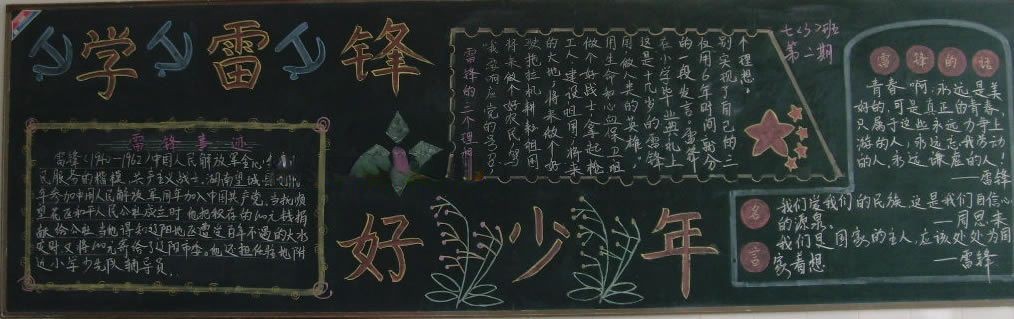 学雷锋
好少年
雷锋事迹
雷锋(1940-1962)中国人民解放军
民服务的楷模,共产主义战士,湖南望城县
年参加中国人民解放军同年加入中国共产党,当抚顺
望花区和平人民公社成立时他把积存的100元钱捐
献给公社,当他得知辽阳地区遭受百年不遇的大水
灾时又将100元寄给了辽阳市委。他还担任驻地附
近小学少先队辅导员,
七(3)班
第二期
个理想。
别实现了自己的三
仅用6年时间就分
的一段发言。雷锋
在小学毕业典礼上
这是十几岁的雷锋
国做人类的英雄。"
用生命和心血保卫祖
做个好战士,拿起枪
工人建设祖国,将来
的大地,将来做个好
驶拖拉机耕耘祖国
将来做个好农民,驾
"我响应党的号召,
雷锋的三个理想
雷锋的话
青春啊,永远是美
好的,可是真正的青春,
只属于这些永远力争上
游的人,永远忘我劳动
的人,永远谦虚的人!
——雷锋
名言
我们爱我们的民族,这是我们自信心
的源泉。——周恩来
我们是国家的主人,应该处处为国
家着想——雷锋